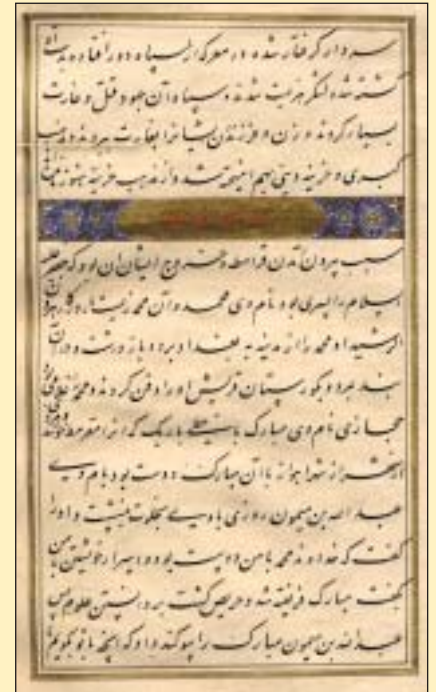 سردار گرفتار شده در معرکه از سپاه دور افتاده بدست
کشته شد لشکر هزیمت شدند و سپاه آن جهود قتل و غارت
بسیار کردند و زن و فرزندان ایشانرا بغارت بردند و مذهب
گبری و خرمه دینی بهم آمیخته شد و از مذهب خرمیه هنوز
سبب بیرون آمدن قرامطه و خروج ایشان آن بود که جعفر
را پسری بود نام وی محمد و آن محمد
الرشید او محمد را از مدینه به بغداد برد و باز داشت و در آن
بند مرد و بگورستان قریش او را دفن کردند و محمد را غلامی
حجازی نام وی مبارک با خط باریک که آنرا مقرمط خوانند
از شهر اهواز با آن مبارک دوست بود نام وی
عبد الله بن میمون روزی با وی بخلوت بنشست و او را
گفت که خداوند محمد با من دوست بود و اسرار خویشتن با من
بگفت مبارک فریفته شد و حریص گشت بر دانستن علوم پس
عبد الله بن میمون مبارک را سوگند داد که آنچه با تو بگویم